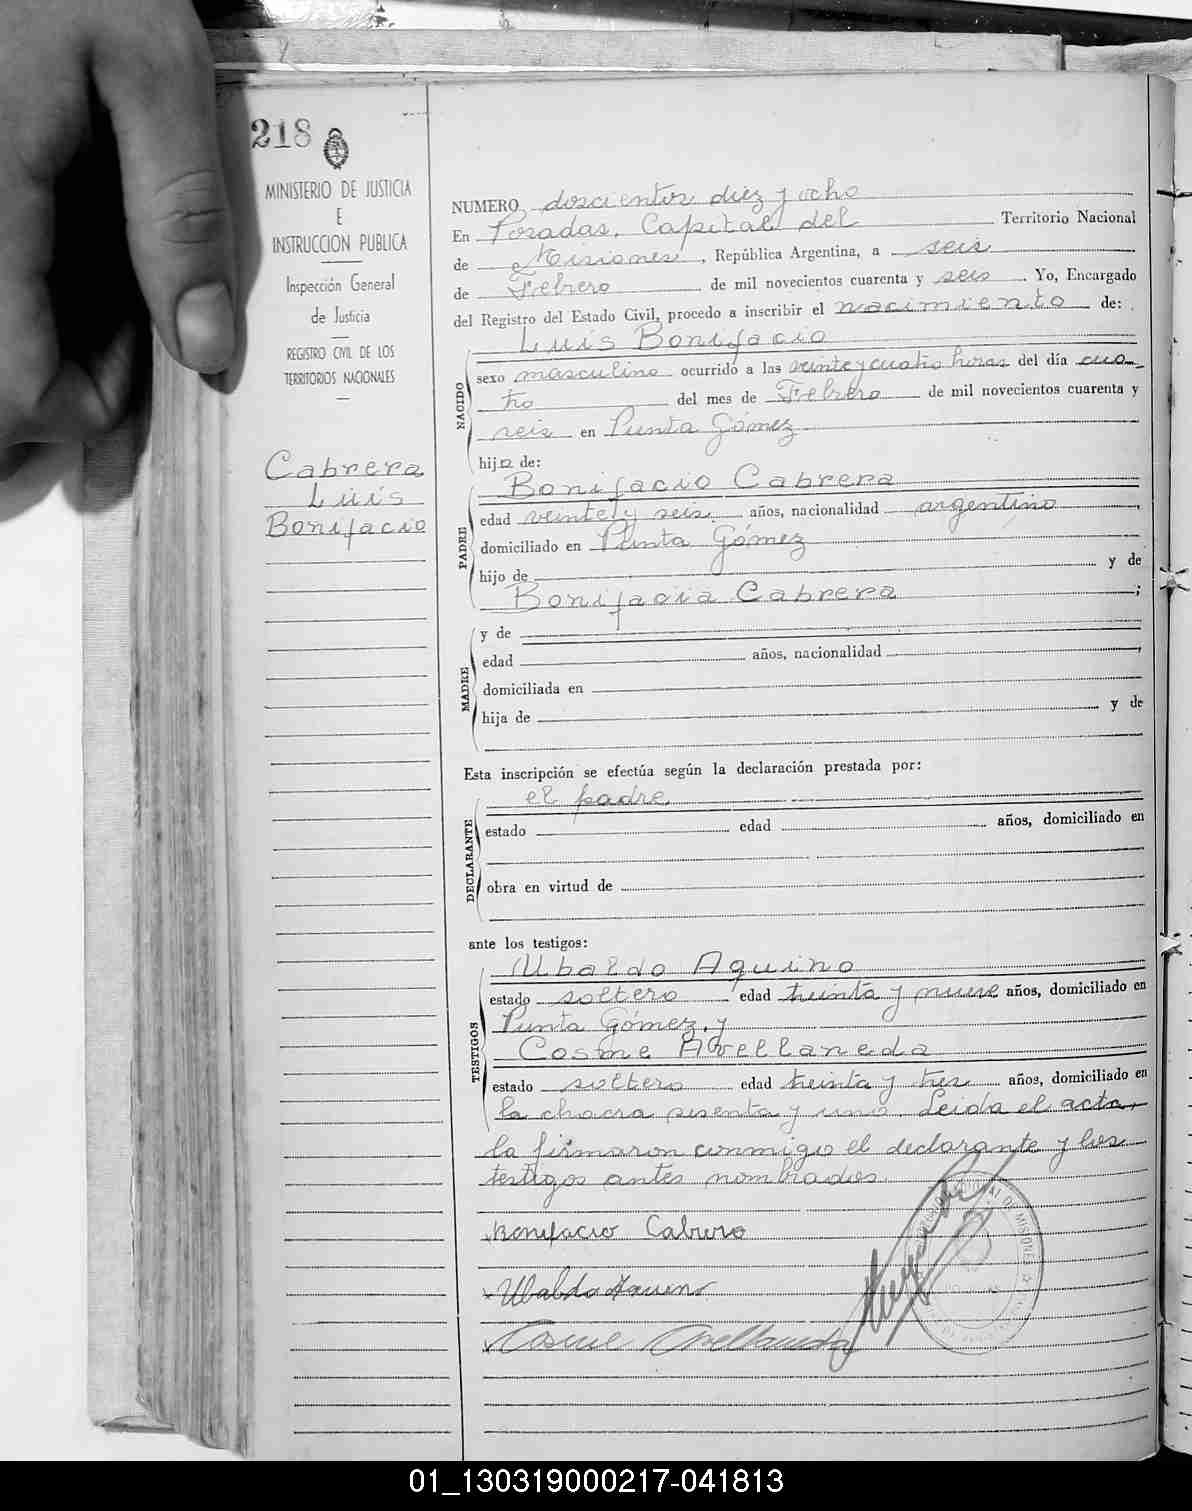 218
MINISTERIO DE JUSTICIA
E
INSTRUCCION PUBLICA
Inspección General
de Justicia
REGISTRO CIVIL DE LOS
TERRITORIOS NACIONALES
Cabrera
Luis
Bonifacio
NUMERO doscientos diez y ocho
En Posadas, Capital del Territorio Nacional
de Misiones, República Argentina, a seis
de Febrero de mil novecientos cuarenta y seis. Yo, Encargado
del Registro del Estado Civil, procedo a inscribir el nacimiento de:
Luis Bonifacio
NACIDO
sexo masculino ocurrido a las veinte y cuatro horas del día cua-
tro del mes de Febrero de mil novecientos cuarenta y
seis en Punta Gómez
hijo de:
Bonifacio Cabrera
PADRE
edad veinte y seis años, nacionalidad argentino,
domiciliado en Punta Gómez
hijo de y de
Bonifacia Cabrera;
MADRE
y de
edad años, nacionalidad,
domiciliada en
hija de y de
Esta inscripción se efectúa según la declaración prestada por:
el padre
DECLARANTE
estado edad años, domiciliado en
obra en virtud de
ante los testigos:
Ubaldo Aquino
TESTIGOS
estado soltero edad treinta y nueve años, domiciliado en
Punta Gómez, y
Cosme Avellaneda
estado soltero edad treinta y tres años, domiciliado en
la chacra sesenta y uno. Leida el acta,
la firmaron conmigo el declarante y los
testigos antes nombrados.
Bonifacio Cabrera
Ubaldo Aquino
Cosme Avellaneda
DE MISIONES
01_130319000217-041813